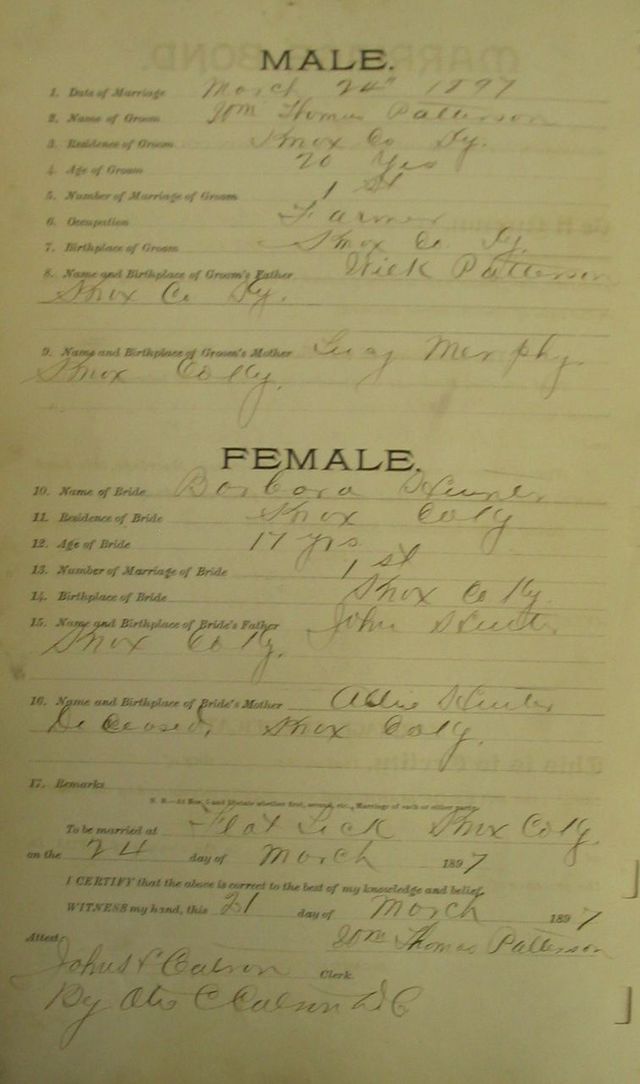 MALE.
1. Date of Marriage March 24" 1897
2. Name of Groom Wm Thomas Patterson
3. Residence of Groom Knox Co Ky.
4. Age of Groom 20 Yrs
5. Number of Marriage of Groom 1 st
6. Occupation Farmer
7. Birthplace of Groom Knox Co Ky.
8. Name and Birthplace of Groom's Father Wick Patterson
Knox Co Ky.
9. Name and Birthplace of Groom's Mother Murphy.
Knox Co Ky.
FEMALE.
10. Name of Bride Barbara
11. Residence of Bride Knox Co Ky
12. Age of Bride 17 yrs
13. Number of Marriage of Bride 1 st
14. Birthplace of Bride Knox Co Ky.
15. Name and Birthplace of Bride's Father John
Knox Co Ky.
16. Name and Birthplace of Bride's Mother
Deceased, Knox Co Ky.
17. Remarks
N. B.—At Nos. 5 and state whether first, second, etc., Marriage of each or either party.
To be married at Flat Lick Knox Co Ky.
on the 24 day of March 1897
I CERTIFY that the above is correct to the best of my knowledge and belief.
WITNESS my hand, this 21 day of March 1897
Wm Thomas Patterson
Attest:
Clerk.
By D C